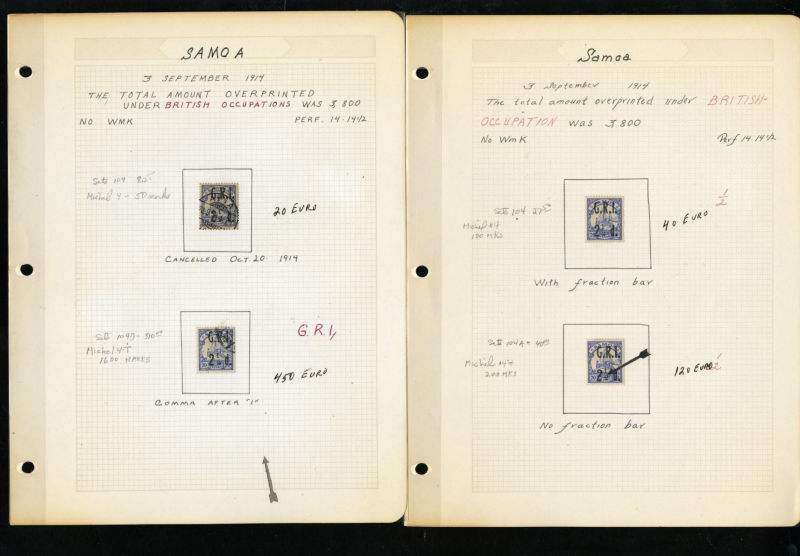 SAMOA
3 SEPTEMBER 1914
THE TOTAL AMOUNT OVERPRINTED
UNDER BRITISH OCCUPATIONS WAS 3,800
NO WMK PERF. 14-14½
104
Michel 4 - 50 marks
G.R.I.
2½ d.
20 EURO
CANCELLED OCT. 20 1914
Michel 4
1600 MARKS
G.R.I.
2½ d.
G.R.I,
450 EURO
COMMA AFTER "I"
Samoa
3 September 1914
The total amount overprinted under BRITISH-
OCCUPATION was 3,800
No WmK Perf 14-14½
104
Michel
100 MKS
G.R.I.
2½ d.
½
40 EURO
With fraction bar
104A
Michel
200 MKS
SAMOA
G.R.I.
d.
120 EURO
No fraction bar